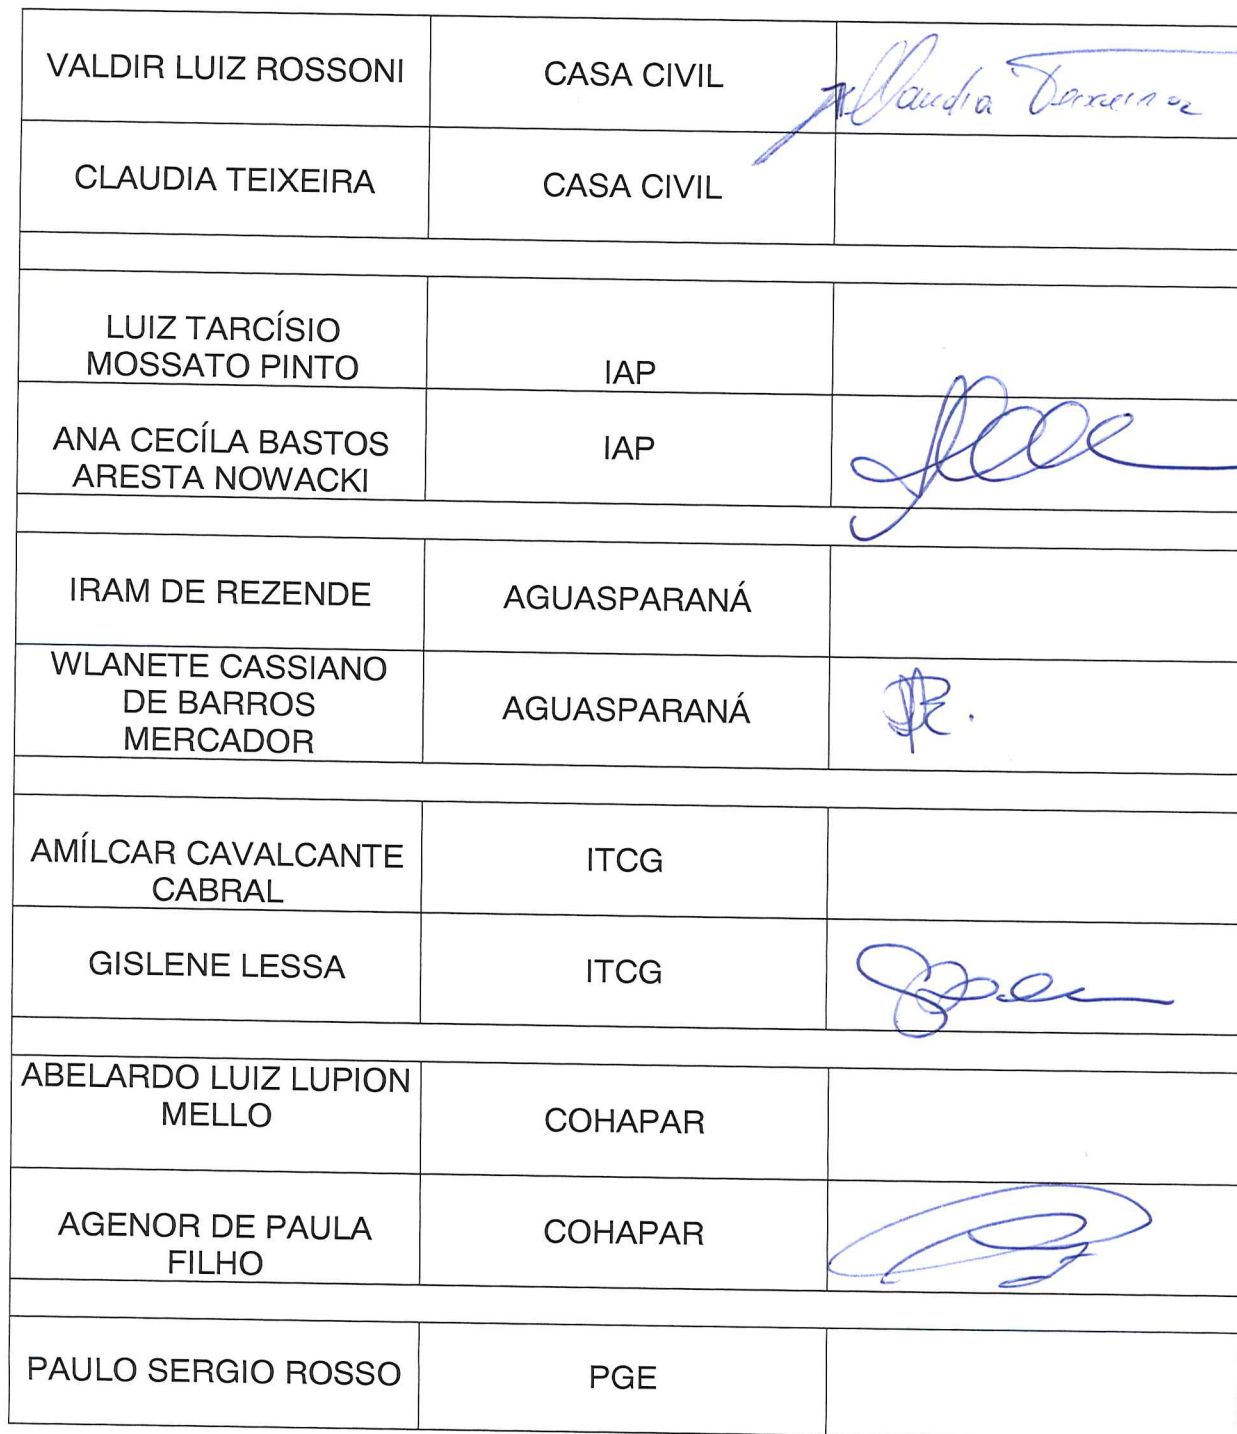 VALDIR LUIZ ROSSONI
CASA CIVIL
Claudia Teixeira
CLAUDIA TEIXEIRA
CASA CIVIL
LUIZ TARCÍSIO
MOSSATO PINTO
IAP
ANA CECÍLA BASTOS
ARESTA NOWACKI
IAP
IRAM DE REZENDE
AGUASPARANÁ
WLANETE CASSIANO
DE BARROS
MERCADOR
AGUASPARANÁ
AMÍLCAR CAVALCANTE
CABRAL
ITCG
GISLENE LESSA
ITCG
ABELARDO LUIZ LUPION
MELLO
COHAPAR
AGENOR DE PAULA
FILHO
COHAPAR
PAULO SERGIO ROSSO
PGE